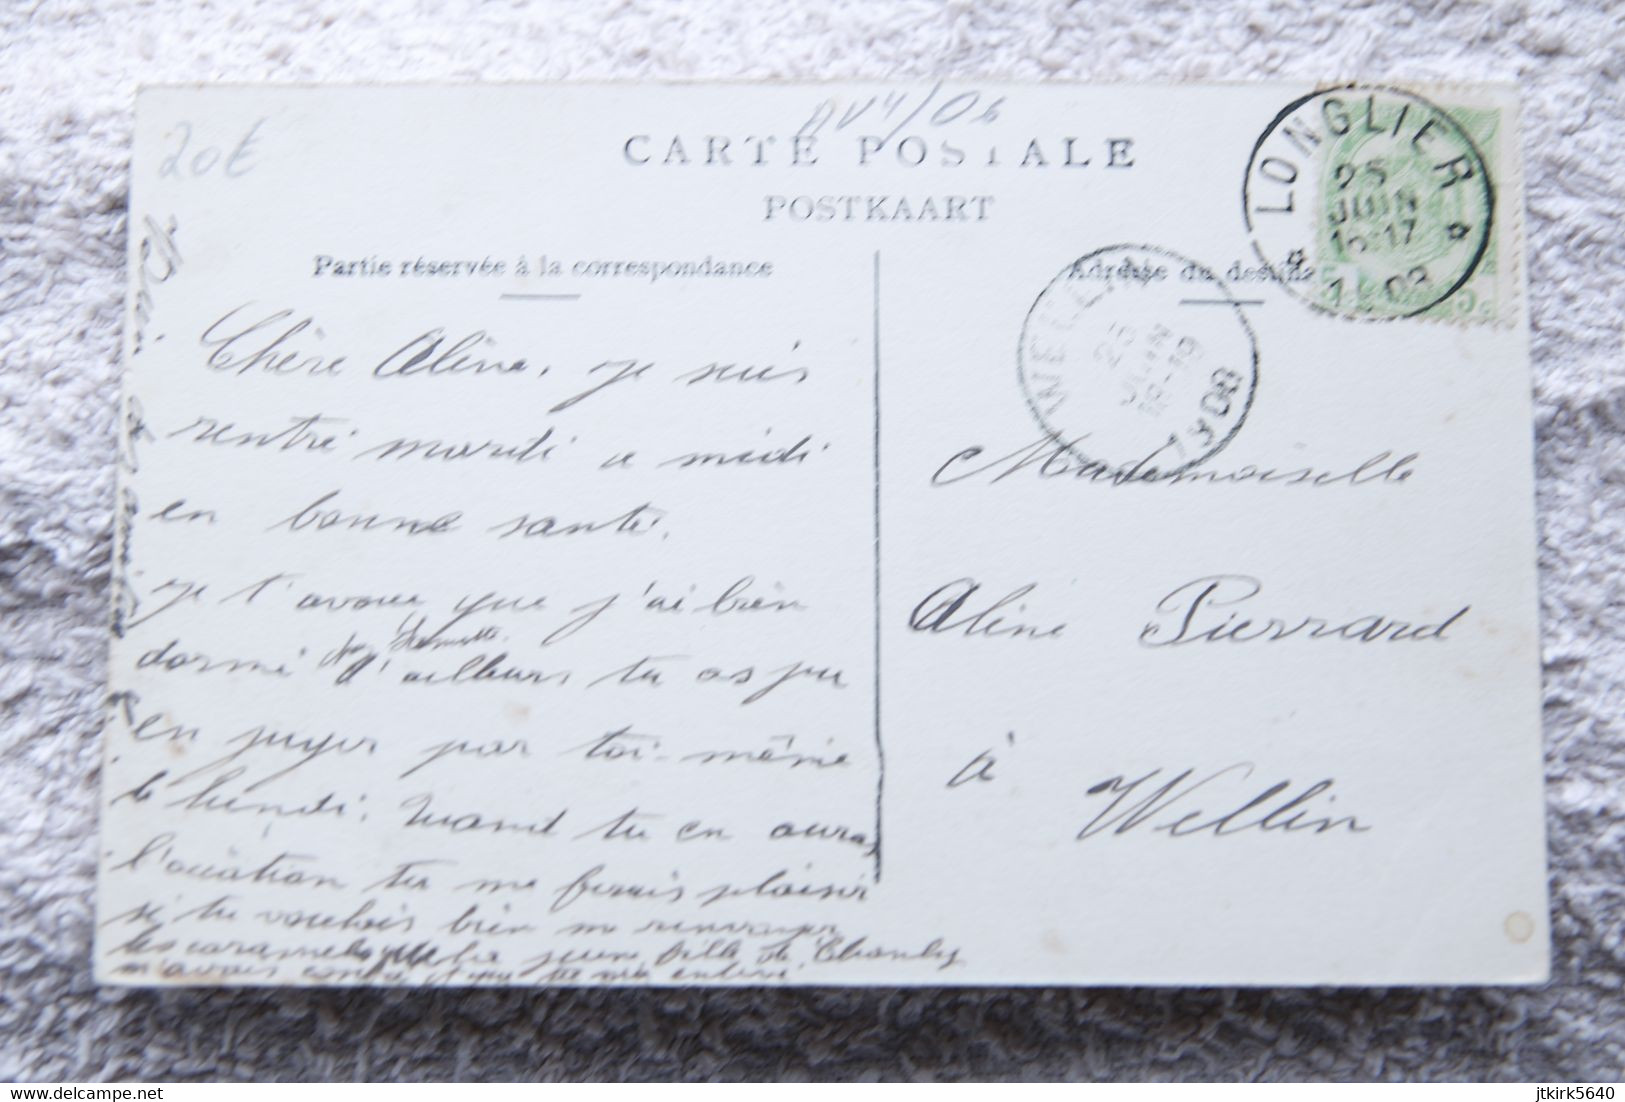 20€
CARTE POSTALE
POSTKAART
Partie réservée à la correspondance
Adresse du destina
LONGLIER
25
JUIN
16-17
1908
5c
WELLIN
25
JUIN
18-19
1908
Chère Aline, je suis
rentré mardi a midi
en bonne santé.
je t'avoue que j'ai bien
dormi d'ailleurs tu as pu
en juger par toi-même
le lundi. Quand tu en auras
l'ocation tu me ferais plaisir
si tu voulais bien me renvoyer
les caramels que la jeune fille de
m'avais
Mademoiselle
Aline Pierrard
à
Wellin
delcampe.net
jtkirk5640